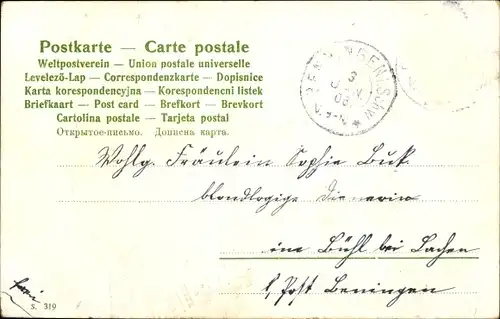 Postkarte — Carte postale
Weltpostverein — Union postale universelle
Levelező-Lap — Correspondenzkarte — Dopisnice
Karta korespondencyjna — Korespondencni listek
Briefkaart — Post card — Brefkort — Brevkort
Cartolina postale — Tarjeta postal
Открытое-письмо. Дописна карта.
Wohlg. Fräulein Sophie Buk.
im Bühl bei Lachen
Post Beningen
S. 319